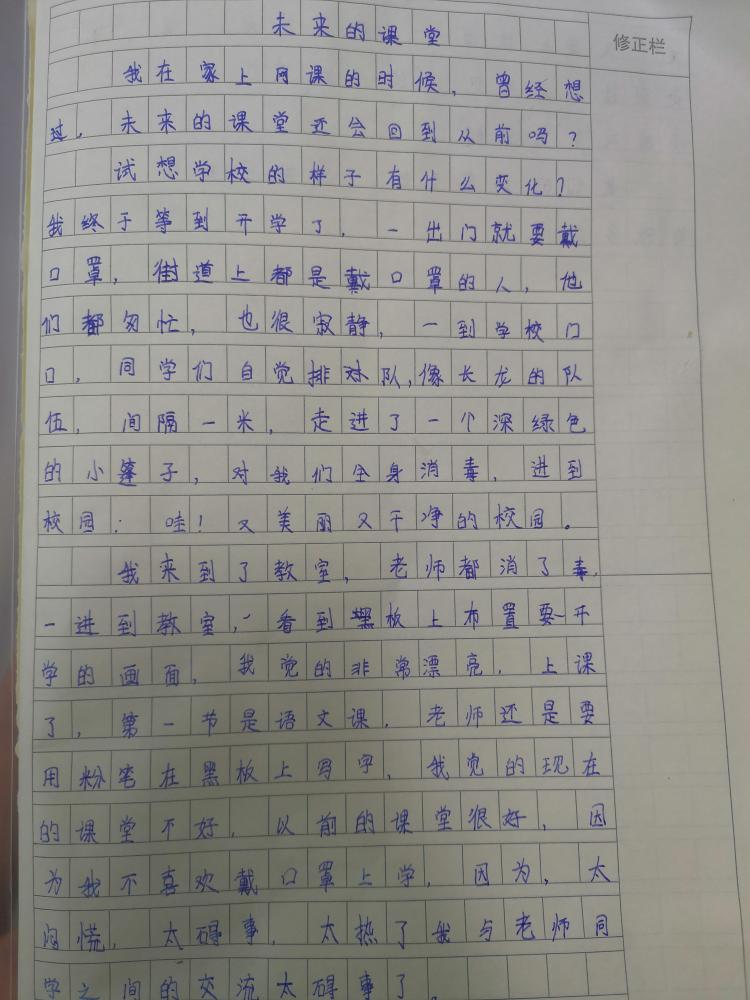 未来的课堂
修正栏
我在家上网课的时候，曾经想
过，未来的课堂还会回到从前吗？
试想学校的样子有什么变化？
我终于等到开学了，一出门就要戴
口罩，街道上都是戴口罩的人，他
们都匆忙，也很寂静，一到学校门
口，同学们自觉排队，像长龙的队
伍，间隔一米，走进了一个深绿色
的小篷子，对我们全身消毒，进到
校园：哇！又美丽又干净的校园。
我来到了教室，老师都消了毒，
一进到教室，看到黑板上布置要开
学的画面，我觉的非常漂亮，上课
了，第一节是语文课，老师还是要
用粉笔在黑板上写字，我觉的现在
的课堂不好，以前的课堂很好，因
为我不喜欢戴口罩上学，因为，太
闷慌，太碍事，太热了我与老师同
学之间的交流太碍事了，